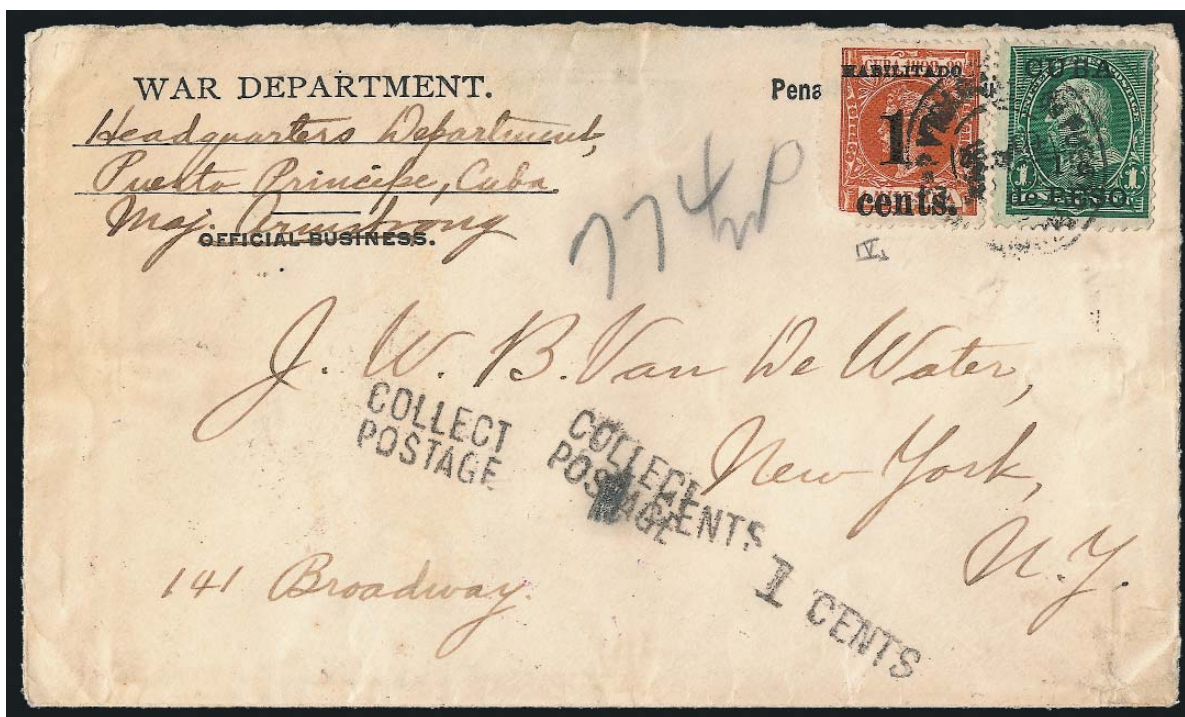 WAR DEPARTMENT.
Headquarters Department,
Puerto Principe, Cuba.
Maj. Armstrong
OFFICIAL BUSINESS.
Pena
HABILITADO
1
cents.
CUBA
1 1
de PESO.
IV
J. W. B. Van De Water,
New York,
N. Y.
141 Broadway.
COLLECT
POSTAGE
COLLECT
POSTAGE
CENTS
1 CENTS